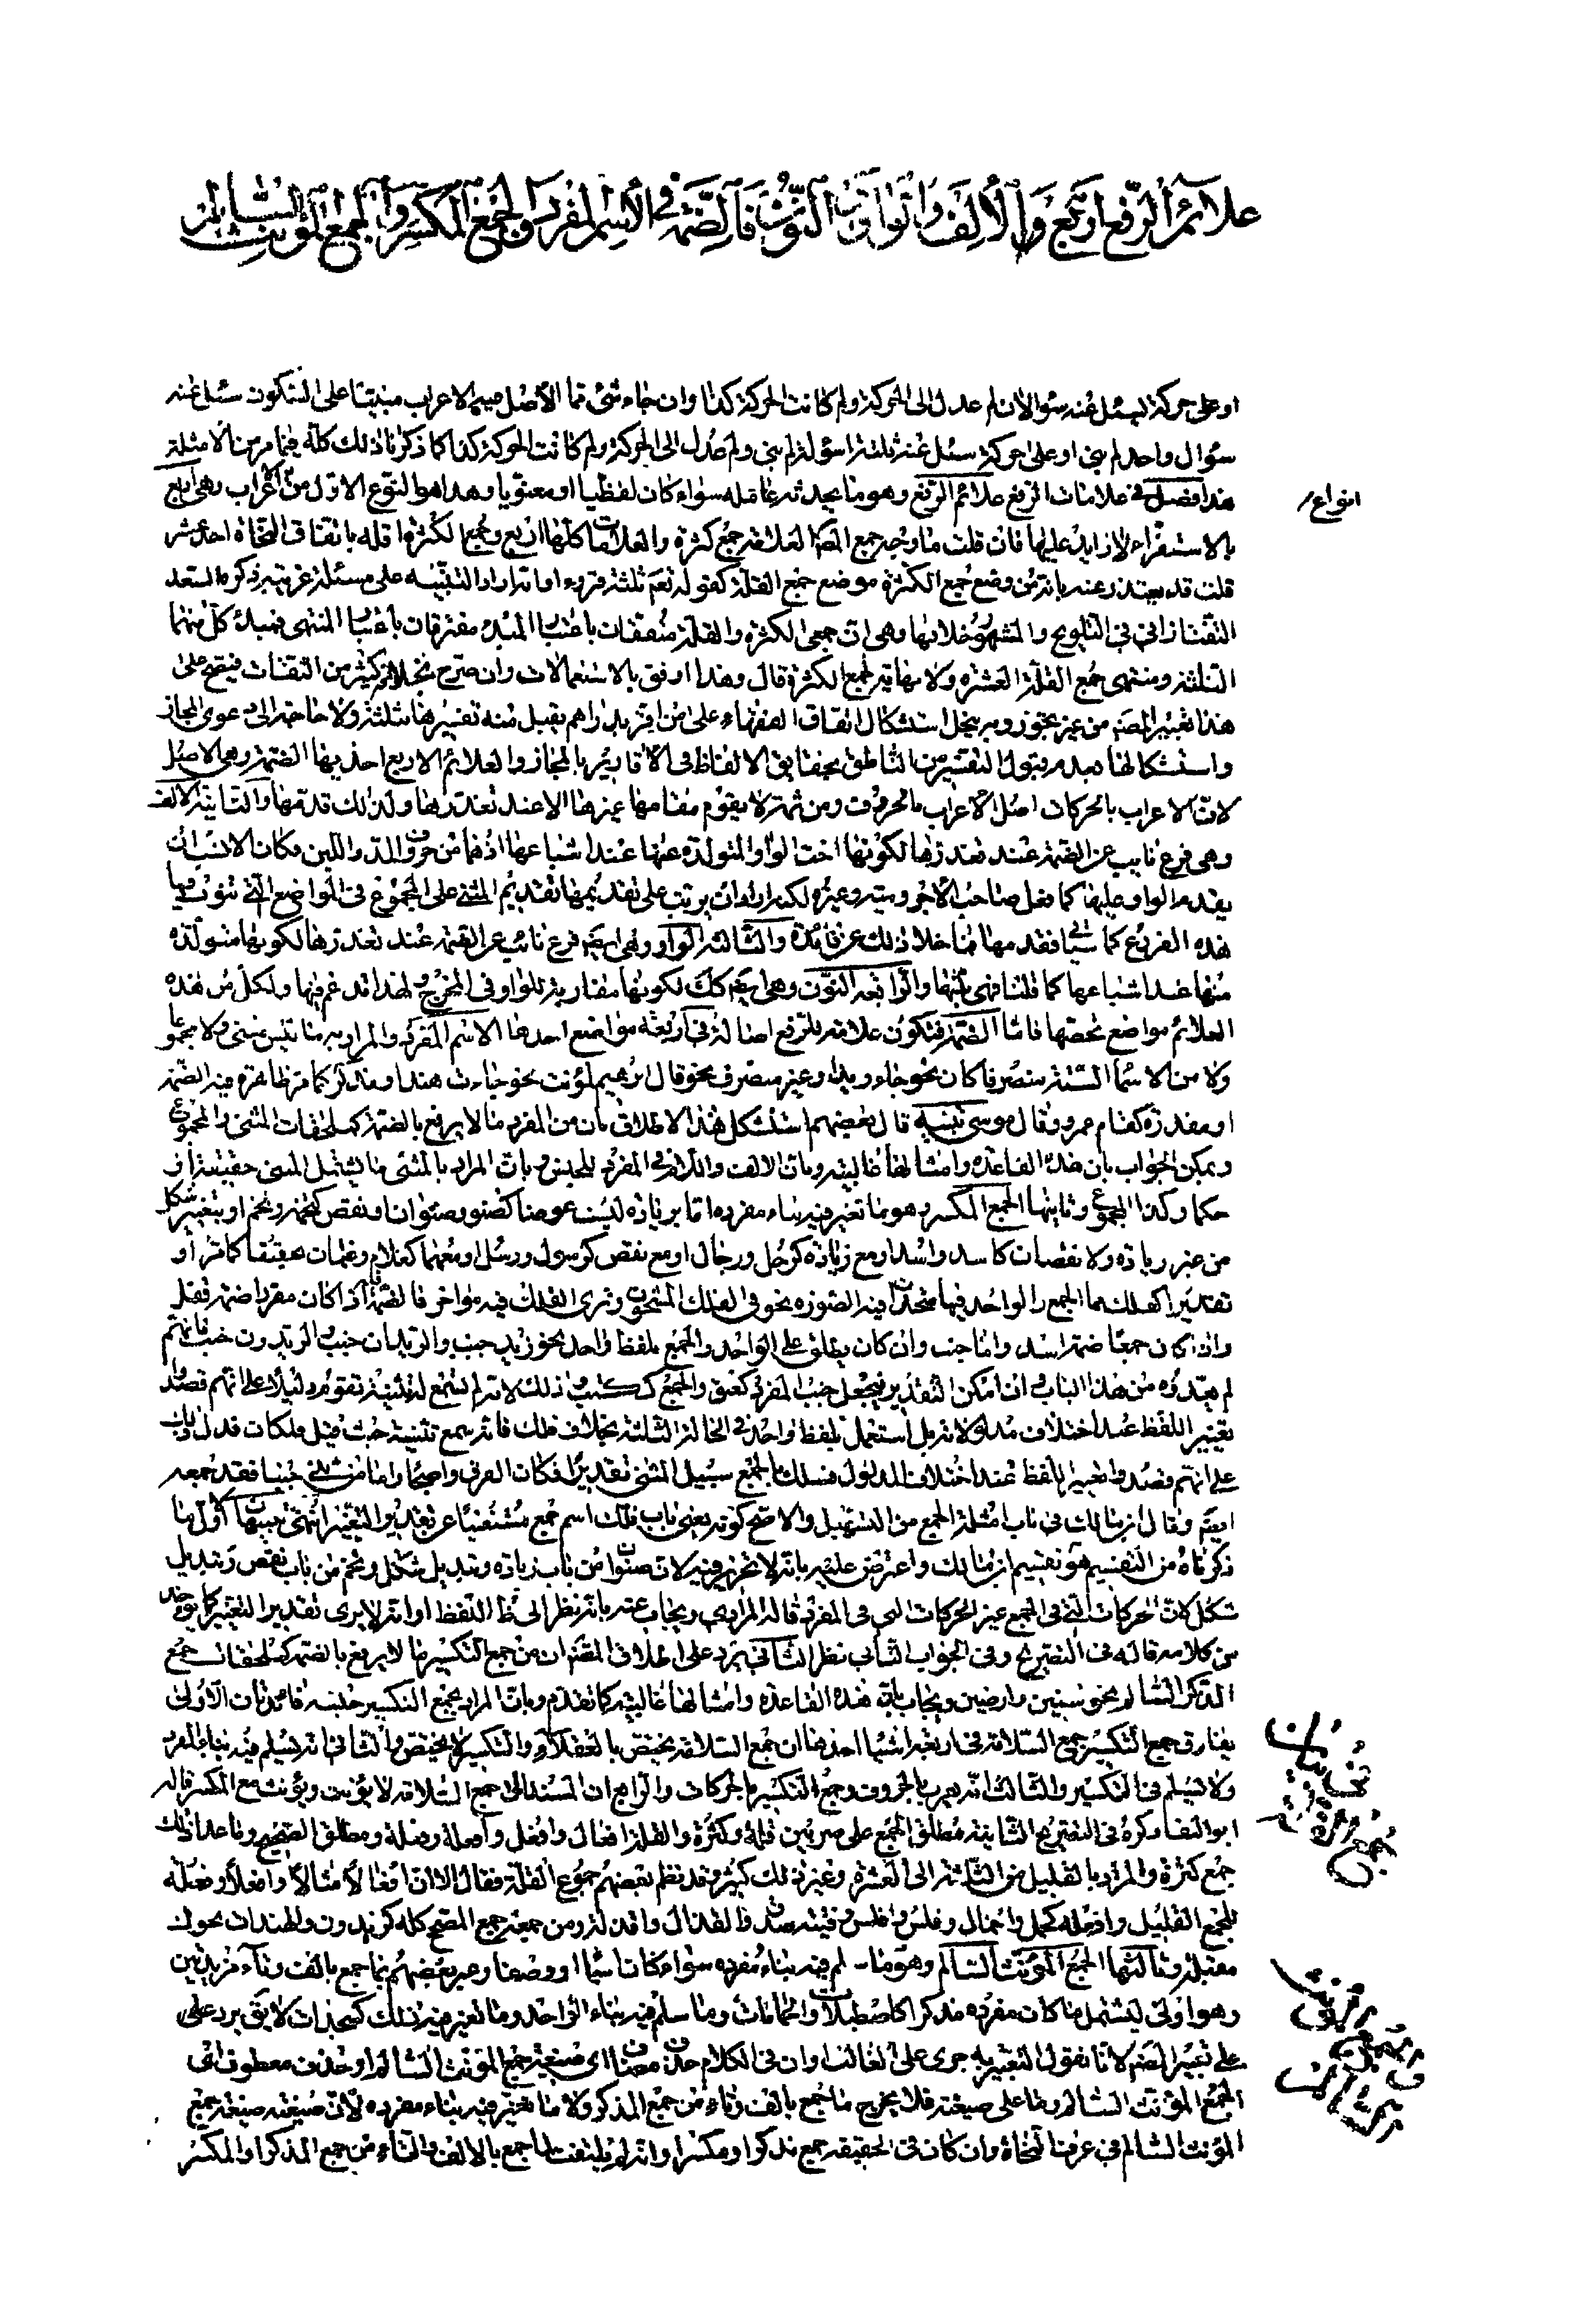 علائم الرفع اربع والالف والواو والنون فالضمة في الاسم المفرد والجمع المكسر والجمع المؤنث السالم
او على حركة ليسئل عنه سؤالان لم عدل الى الحركة ولم كانت الحركة كذا وان جاء شئ مما الأصل فيه الاعراب مبنيا على السكون سئل عنه
سؤال واحد لم بني او على حركة سئل عنه ثلثة اسؤلة لم بني ولم عدل الى الحركة ولم كانت الحركة كذا كما ذكرنا ذلك كله فيما مر من الامثلة
هذا فصل في علامات الرفع علائم الرفع وهو ما يحدثه عامله سواء كان لفظيا او معنويا وهذا هو النوع الاول من الاعراب وهي اربع
انواع
بالاستقراء لا زايد عليها فان قلت ما وجه جمع المص العلامة جمع كثرة والعلامات كلها اربع وجمع الكثرة اقله باتفاق النحاة احد عشر
قلت قد يعتذر عنه بانه من وضع جمع الكثرة موضع جمع القلة كقوله تعم ثلثة قروء او انه اراد التنبيه على مسئلة غريبة ذكرها السعد
التفتازاني في التلويح والمشهور خلافها وهي ان جمعى الكثرة والقلة متفقان باعتبار المبدء مفترقان باعتبار المنتهى فمبدء كل منهما
الثلثة ومنتهى جمع القلة العشرة ولا نهاية لجمع الكثرة قال وهذا اوفق بالاستعمالات وان صرح بخلافه كثير من الثقات فيتضح على
هذا تعبير المص من غير تجوز وبه ينحل استشكال اتفاق الفقهاء على من اقر بدراهم يقبل منه تفسيرها بثلثة ولا حاجة الى دعوى المجاز
واستشكالها بعدم قبول التفسير من الناطق بحقايق الالفاظ في الاقارير بالمجاز والعلائم الاربع احديها الضمة وهي الاصل
لان الاعراب بالحركات اصل الاعراب بالحروف ومن ثمة لا يقوم مقامها غيرها الا عند تعذرها ولذلك قدمها والثانية الالف
وهي فرع نايب عن الضمة عند تعذرها لكونها اخت الواو المتولدة عنها عند اشباعها اذ هما من حروف المد واللين وكان الانسب ان
يقدم الواو عليها كما فعل صاحب الاجرومية وغيره لكنه اراد ان يرتب على تقديمها تقديم المثنى على المجموع في المواضع التي تنوب فيها
هذه الفروع كما سيأتي فقدمها هنا خلا ذلك عن فائدة والثالثة الواو وهي ايضا فرع نائب عن الضمة عند تعذرها لكونها متولدة
منها عند اشباعها كما قلنا فهي بنتها والرابعة النون وهي ايضا كك لكونها مقاربة للواو في المخرج ولهذا تدغم فيها ولكل من هذه
العلائم مواضع تخصها فاما الضمة فتكون علامة للرفع اصالة في اربعة مواضع احدها الاسم المفرد والمراد به ما ليس بمثنى ولا مجموعا
ولا من الاسماء الستة منصرفا كان نحو جاء زيد او غير منصرف نحو قال ابرهيم لمؤنث نحو جاءت هند او مذكر كما مر ظاهرة فيه الضمة
او مقدرة كقام عمرو وقال موسى تنبيه قال بعضهم استشكل هذا الاطلاق بان من المفرد ما لا يرفع بالضمة كملحقات المثنى والمجموع
ويمكن الجواب بان هذه القاعدة وامثالها غالبية وبان الالف واللام في المفرد للجنس وبان المراد بالمثنى ما يشمل المثنى حقيقة او
حكما وكذا المجموع وثانيها الجمع المكسر وهو ما تغير فيه بناء مفرده اما بزيادة ليست عوضا كصنو وصنوان او نقص كتخمة وتخم او بتغيير شكل
من غير زيادة ولا نقصان كاسد واسد او مع زيادة كرجل ورجال او مع نقص كرسول ورسل او معهما كغلام وغلمان تحقيقا كما مر او
تقديرا كفلك مما الجمع والواحد فيها متحدان فيه الصورة نحو في الفلك المشحون وترى الفلك فيه مواخر فالضمة اذا كان مفردا ضمة قفل
وان كان جمعا ضمة اسد واما جنب وان كان يطلق على الواحد والجمع بلفظ واحد نحو زيد جنب والزيدان جنب والزيدون جنب فانهم
لم يعدوه من هذا الباب وان امكن التقدير فيجعل جنب المفرد كعنق والجمع ككتب وذلك لانه لم يسمع له تثنية فيقوم دليلا على انهم قصدوا
تغيير اللفظ عند اختلاف مدلوله بل استعمل بلفظ واحد في الحالة الثلثة بخلاف فلك فانه سمع تثنيته حيث قيل فلكان فدل ذلك
على انهم قصدوا تغيير اللفظ عند اختلاف المدلول فسلك بالجمع سبيل المثنى تقديرا فكان الفرق واضحا واما من ثنى جنبا فقد جمعه
ايضا وقال ابن مالك في باب امثلة الجمع من التسهيل والاصح كونه يعني باب فلك اسم جمع مستغنيا عن تقدير التغيير انتهى تنبيهان الاول ما
ذكرناه من التقسيم هو تقسيم ابن مالك واعترض عليه بانه لا تحرير فيه لان صنوان من باب زيادة وتبديل شكل وتخم من باب نقص وتبديل
شكل لان الحركات التي في الجمع غير الحركات التي في المفرد قاله المرادي ويجاب عنه بانه نظر الى ظ اللفظ او انه لا يرى تقدير التغيير كما يؤخذ
من كلامه قاله في التصريح وفي الجواب الثاني نظر الثاني يرد على اطلاق المص ان من جمع التكسير ما لا يرفع بالضمة كملحقات جمع
المذكر السالم نحو سنين وارضين ويجاب بان هذه القاعدة وامثالها غالبية كما تقدم وبان المراد بجمع التكسير جنسه فائدتان الاولى
يفارق جمع التكسير جمع السلامة في اربعة اشياء احدها ان جمع السلامة يختص بالعقلاء والتكسير لا يختص والثاني انه يسلم فيه بناء المفرد
ولا يسلم في التكسير والثالث انه يعرب بالحروف وجمع التكسير بالحركات والرابع ان المسند الى جمع السلامة لا يؤنث ويؤنث مع المكسر قاله
ابو البقاء ذكره في التصريح الثانية مطلق الجمع على ضربين قلة وكثرة والقلة افعال وافعل وافعلة وفعلة ومطلق الصحيح وما عدا ذلك
جمع كثرة والمراد بالقليل من الثلثة الى العشرة وغير ذلك كثير وقد نظم بعضهم جموع القلة فقال الا ان افعالا مثالا وافعلا وفعلة
للجمع القليل وافعلة كحمل واحمال وفلس وافلس وفتية صدق والقذال واقذلة ومن جمعه جمع المصحح كله كزيدون والهندات
معتبلة وثالثها الجمع المؤنث السالم وهو ما سلم فيه بناء مفرده سواء كان اسما او وصفا وعبر بعضهم بما جمع بالف وتاء مزيدتين
وهو اولى ليشمل ما كان مفرده مذكرا كاصطبلات وحمامات وما سلم فيه بناء الواحد وما تغير فيه ذلك كسجدات لا يق يرد على
على تعبير المص لانا نقول التعبير به جرى على الغالب او ان في الكلام حذف مضاف اى صيغة جمع المؤنث السالم او حذف معطوف اى
الجمع المؤنث السالم وما على صيغته فلا يخرج ما جمع بالف وتاء من جمع المذكر ولا ما تغير فيه بناء مفرده لان صيغته صيغة جمع
المؤنث السالم في عرف النحاة وان كان في الحقيقة جمع مذكر او مكسرا وانه لم يلتفت لما جمع بالالف والتاء من جمع المذكر والمكسر